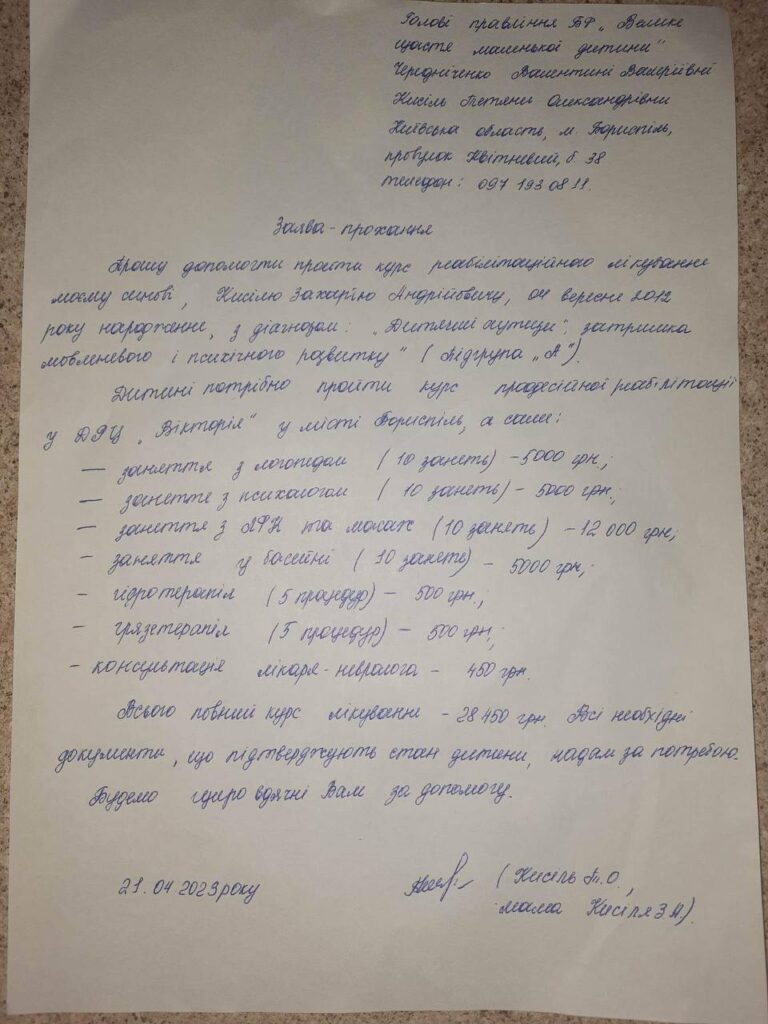 Голові правління БФ „Велике
щастя маленької дитини"
Чередніченко Валентині Валеріївні
Кисіль Тетяни Олександрівни
Київська область, м. Бориспіль,
провулок Квітневий, б. 38
телефон: 097 193 08 11.
Заява-прохання
Прошу допомогти пройти курс реабілітаційного лікування
моєму синові, Кисілю Захарію Андрійовичу, 04 вересня 2012
року народження, з діагнозом: „Дитячий аутизм", затримка
мовленевого і психічного розвитку" (Підгрупа „А").
Дитині потрібно пройти курс професійної реабілітації
у ДРЦ „Вікторія" у місті Бориспіль, а саме:
— заняття з логопедом (10 занять) – 5000 грн.;
— заняття з психологом (10 занять) – 5000 грн.;
— заняття з ЛФК та масаж (10 занять) – 12 000 грн;
– заняття у басейні (10 занять) – 5000 грн;
– гідротерапія (5 процедур) – 500 грн.;
– грязетерапія (5 процедур) – 500 грн.;
– консультація лікаря-невролога – 450 грн.
Всього повний курс лікування – 28 450 грн. Всі необхідні
документи, що підтверджують стан дитини, надам за потребою.
Будемо щиро вдячні Вам за допомогу.
21.04.2023 року (Кисіль Т.О.,
мама Кисіля З.А.)